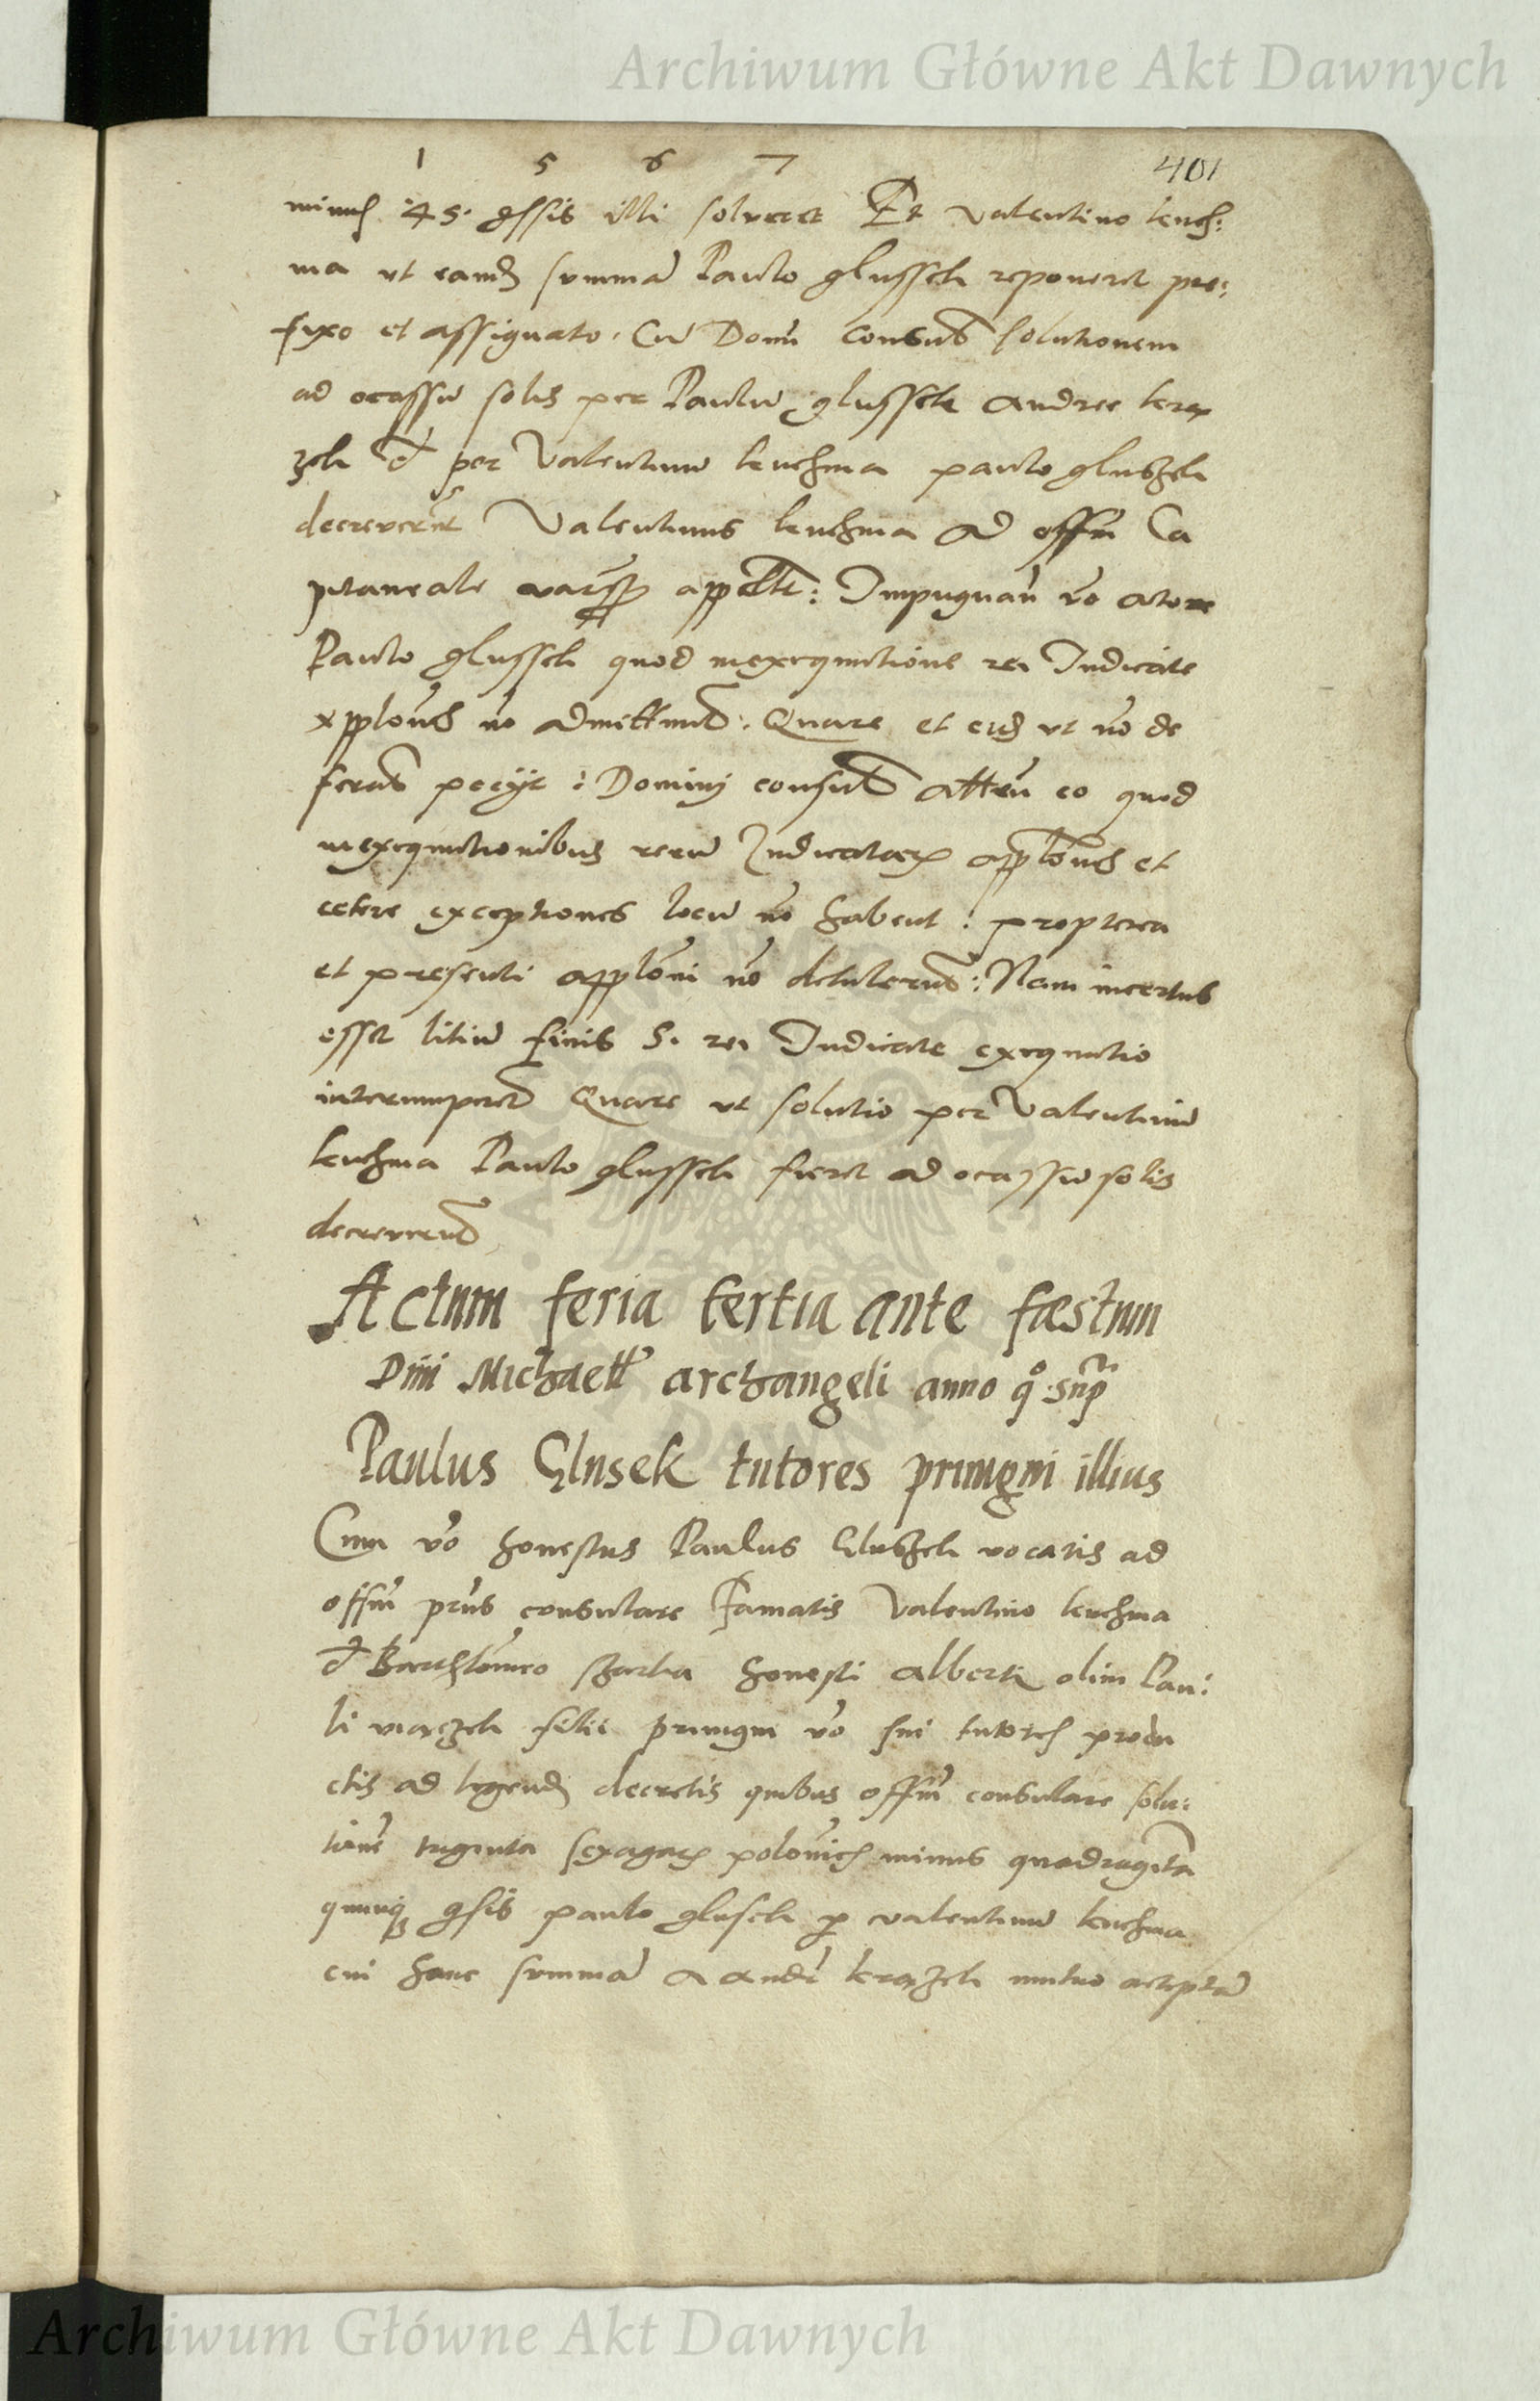 Archiwum Główne Akt Dawnych
1 5 6 7 401
minus 45 gssis illi solveret Et Valentino kuch:
ma ut eamd summa Paulo glussek reponeret pre:
fixo et assignato. Cu Domi Consules solutionem
ad ocassu solis per Paulu glussek Andree
zek et per Valentinu kuchma paulo gluszek
decreverunt Valentinus kuchma ad offm Ca
pitaneale appellt: Impugnan vo actore
Paulo glussek quod inexequutione rei Judicate
applones no admittunt. Quare et eid ut no de
ferant peciit: Domini consules atten eo quod
inexequutionibus reru Judicatar applones et
cetere exceptiones locu no habent: propterea
et presenti apploni no detulerunt: Nam incertus
esset litiu finis S. rei Judicate exequutio
interrumperet Quare ut solutio per Valentinu
kuchma Paulo glussek fieret ad ocassu solis
decreverunt
Actum feria tertia ante fæstum
Diui Michaelis archangeli anno qo sup
Paulus Glusek tutores priuigni illius
Cum vo honestus Paulus Gluszek vocatis ad
offm prns consulare Famatis Valentino kuchma
et Bartholomeo honesti Alberti olim Pau:
li filii priuigni vo sui tutores produ
ctis ad legend decretis quibus offm consulare solu:
tione triginta sexagar polonich minus quadraginta
quinq gsis paulo glusek p valentinu kuchma
cui hanc summa a Andr mutuo acceptā
Archiwum Główne Akt Dawnych